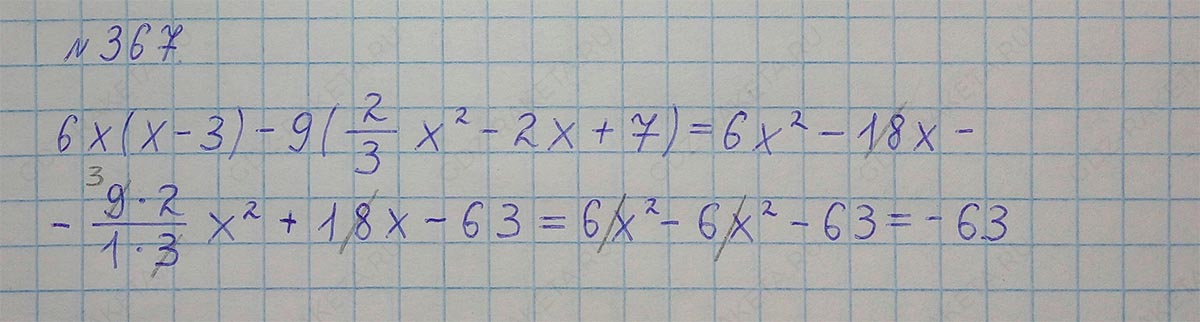 №367.
6x(x-3)-9(2/3 x²-2x+7)=6x²-18x-
-(9·2)/(1·3) x²+18x-63=6x²-6x²-63=-63
3